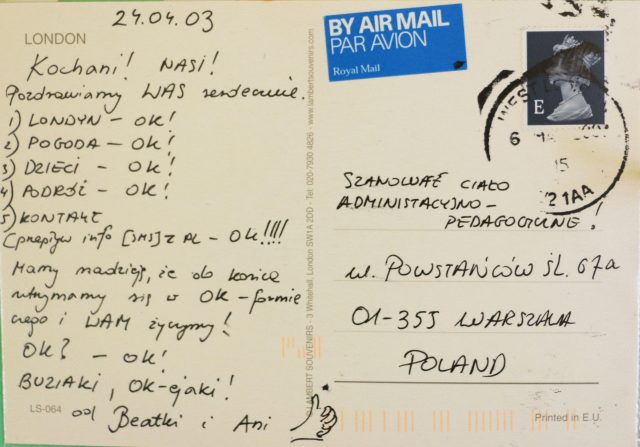 24.04.03
LONDON
Kochani! NASI!
Pozdrawiamy WAS serdecznie.
1) LONDYN – OK!
2) POGODA – OK!
3) DZIECI – OK!
4) PODRÓŻ – OK!
5) KONTAKT
(przepływ info [SMS] z PL – OK!!!!
Mamy nadzieję, że do końca
utrzymamy się w OK-formie
czego i WAM życzymy!
OK? – OK!
BUZIAKI, OK-ejaki!
od Beatki i Ani
LS-064
LAMBERT SOUVENIRS - 3 Whitehall, London SW1A 2DD - Tel: 020-7930 4826 - www.lambertsouvenirs.com
BY AIR MAIL
PAR AVION
Royal Mail
E
6
15
21AA
SZANOWNE CIAŁO
ADMINISTACYJNO-
PEDAGOGICZNE!
ul. POWSTAŃCÓW ŚL. 67a
01-355 WARSZAWA
POLAND
Printed in E.U.